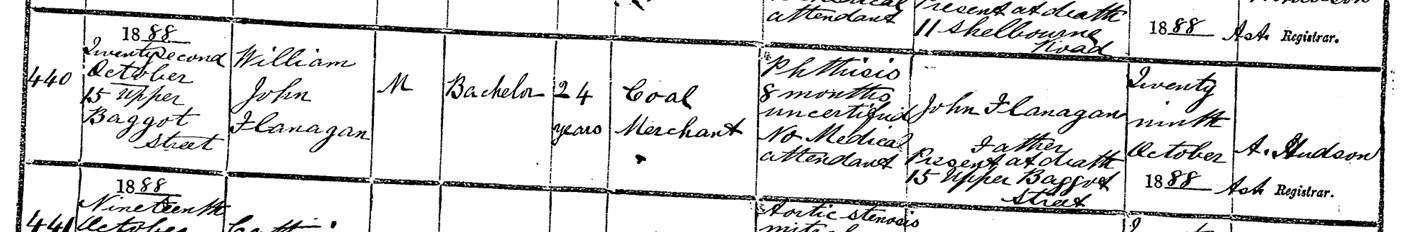 attendant
Present at death
11 Shelbourne
Road
1888
Ast. Registrar.
440
1888
Twenty second
October
15 Upper
Baggot
Street
William
John
Flanagan
M
Bachelor
24
years
Coal
Merchant
Phthisis
8 months
uncertified
No Medical
attendant
John Flanagan
Father
Present at death
15 Upper Baggot
Street
Twenty
ninth
October
1888
A. Hudson
Ast. Registrar.
441
1888
Nineteenth
October
Aortic stenosis
mitral